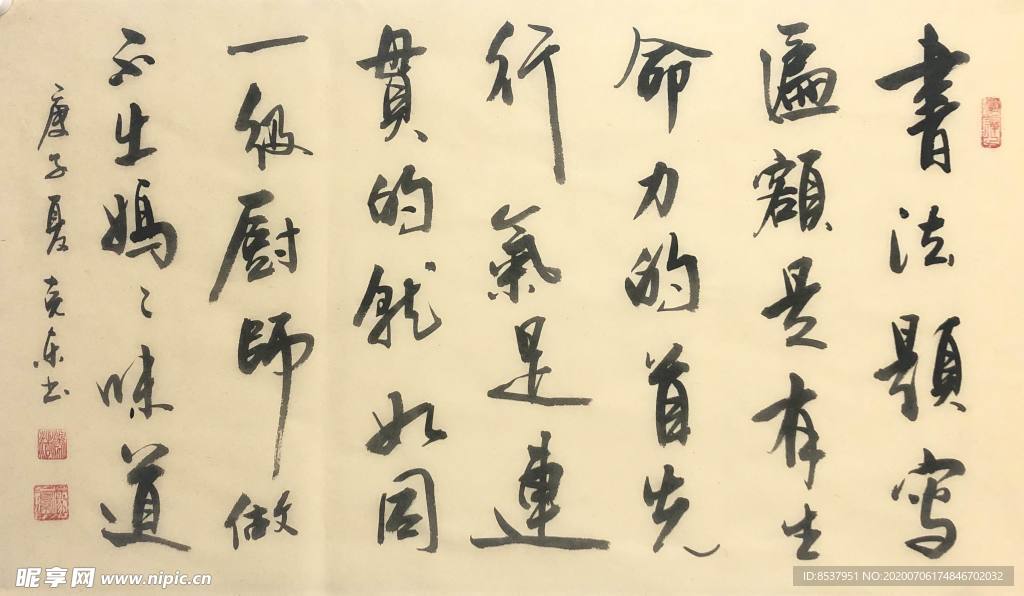 書法題写
遍額是有生
命力的首先
行氣是連
貫的就如同
一級廚師做
不出媽〻味道
庚子夏克东书
昵享网 www.nipic.cn
ID:8537951 NO:20200706174846702032